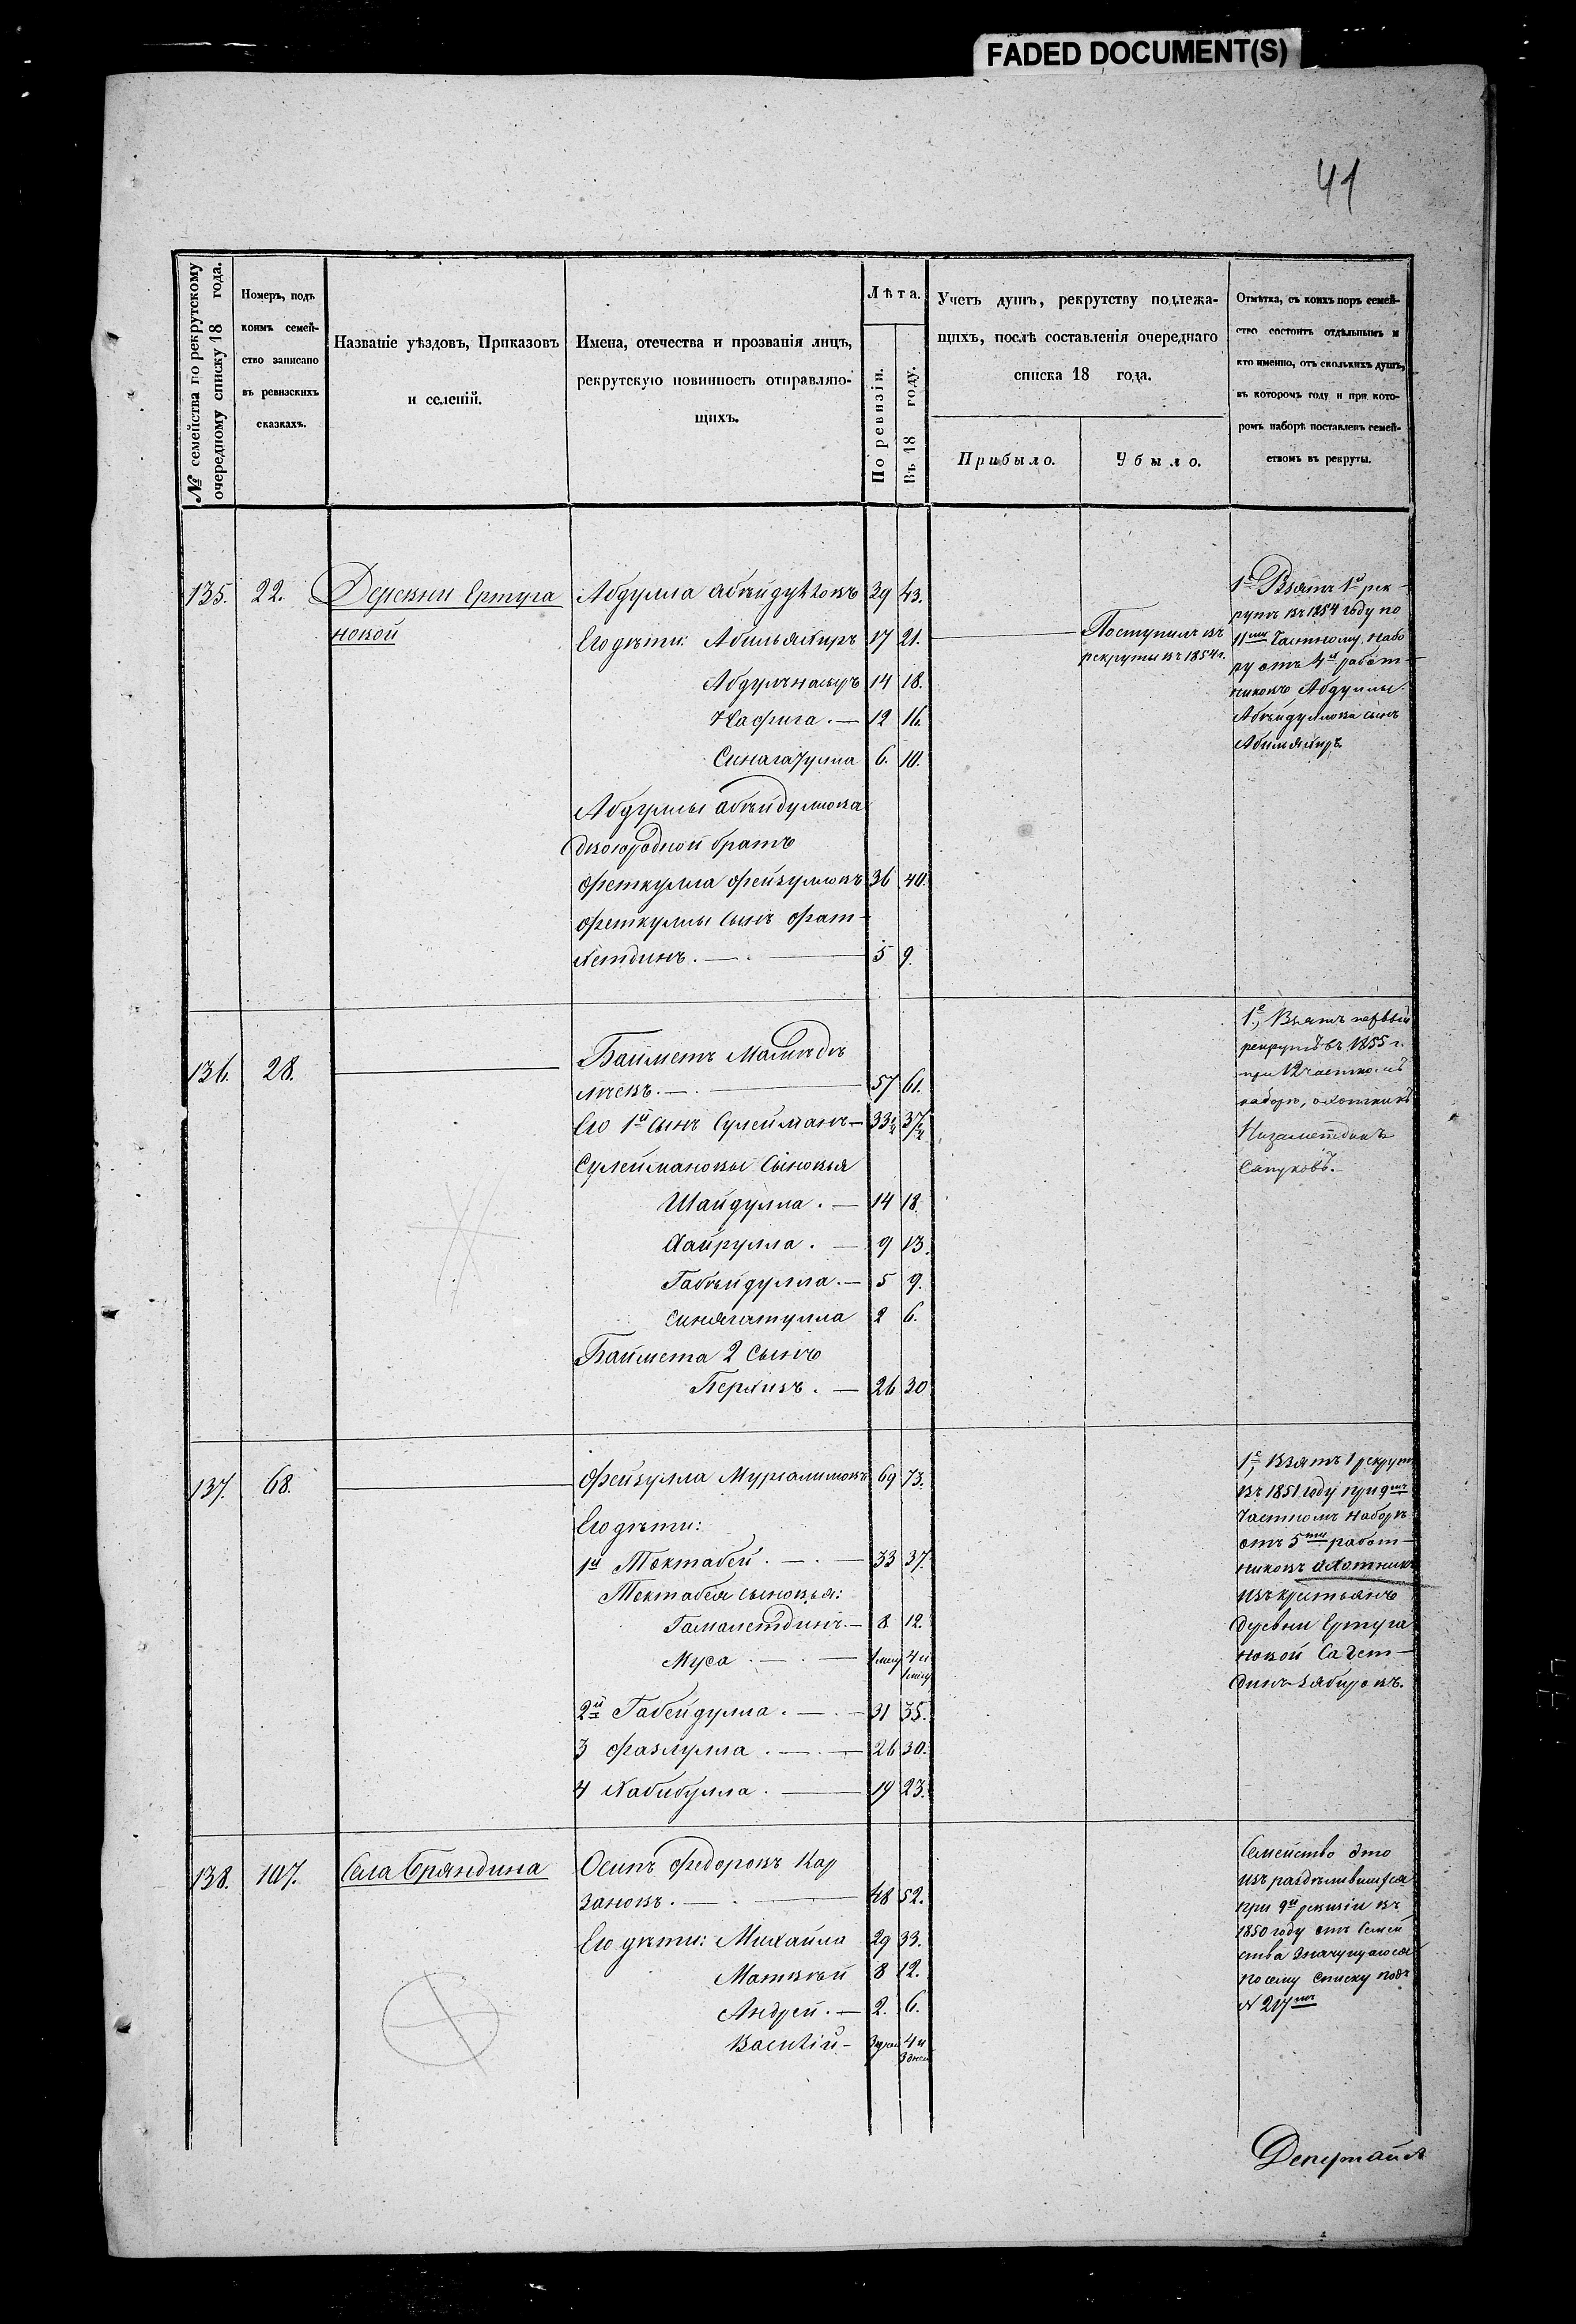 FADED DOCUMENT(S)
41
№ семейства по рекрутскому
очередному списку 18 года.
Номеръ, подъ
коимъ семей-
ство записано
въ ревизскихъ
сказкахъ.
Названіе уѣздовъ, Приказовъ
и селеній.
Имена, отечества и прозванія лицъ,
рекрутскую повинность отправляю-
щихъ.
Лѣта.
По ревизіи.
Въ 18 году.
Учетъ душъ, рекрутству подлежа-
щихъ, послѣ составленія очереднаго
списка 18 года.
Прибыло.
Убыло.
Отмѣтка, съ коихъ поръ семей-
ство состоитъ отдѣльнымъ и
кто именно, отъ сколькихъ душъ,
въ которомъ году и при кото-
ромъ наборѣ поставленъ семей-
ствомъ въ рекруты.
135. 22. Деревни Ертуга
новой
Абдулла Абѣйдулловъ 39 43.
Его дѣти: Абильякиръ 17 21.
14 18.
Нафига. — 12 16.
Синагатулла 6. 10.
Абдуллы Абѣйдуллова
двоюродной братъ
Феткулла Фейзулловъ 36 40.
Феткуллы сынъ Фат-
хетдинъ. — 5 9.
Поступилъ въ
рекруты въ 1854 г.
1е Взятъ 1й рек-
рутъ въ 1854 году по
11му Частному набо
ру отъ 4хъ работ-
никовъ Абдуллы
Абѣйдуллова сынъ
Абильякиръ.
136. 28.
Байметъ
57 61.
Его 1й сынъ Сулейманъ — 33½ 37½
Сулеймановы сыновья
Шайдулла. — 14 18.
Хайрулла. — 9 13.
Габѣйдулла. — 5 9.
Синягатулла 2 6.
Баймета 2 сынъ
26 30
1е, Взятъ первый
рекрутъ въ 1855 г.
при 12 частномъ
наборѣ, охотникъ
Низаметдинъ
Сапуковъ.
137. 68.
Фейзулла Мурсалимовъ 69 73.
Его дѣти:
1й Токтабей. — 33 37.
Токтабея сыновья:
Гамалетдинъ. — 8 12.
Муса. — 4 и
2й Габейдулла. — 31 35.
3 Фазлулла. — 26 30.
4 Хабибулла. — 19 23.
1е, Взятъ 1 рекрутъ
въ 1851 году при 9мъ
Частномъ наборѣ
отъ 5ти работ-
никовъ охотникъ
изъ крестьянъ
деревни Ертуга
новой Садет-
динъ Зябировъ.
138. 107. Села Бряндина
Осипъ Федоровъ Кар
зановъ. — 48 52.
Его дѣти: Михайла 29 33.
Матвѣй 8 12.
Андрей. — 2. 6.
Василій — 3 дней 4 и
3 дней
Семейство это
изъ раздѣлившейся
при 9й ревизіи въ
1850 году отъ семей
ства значущагося
по сему списку подъ
№ 217мъ